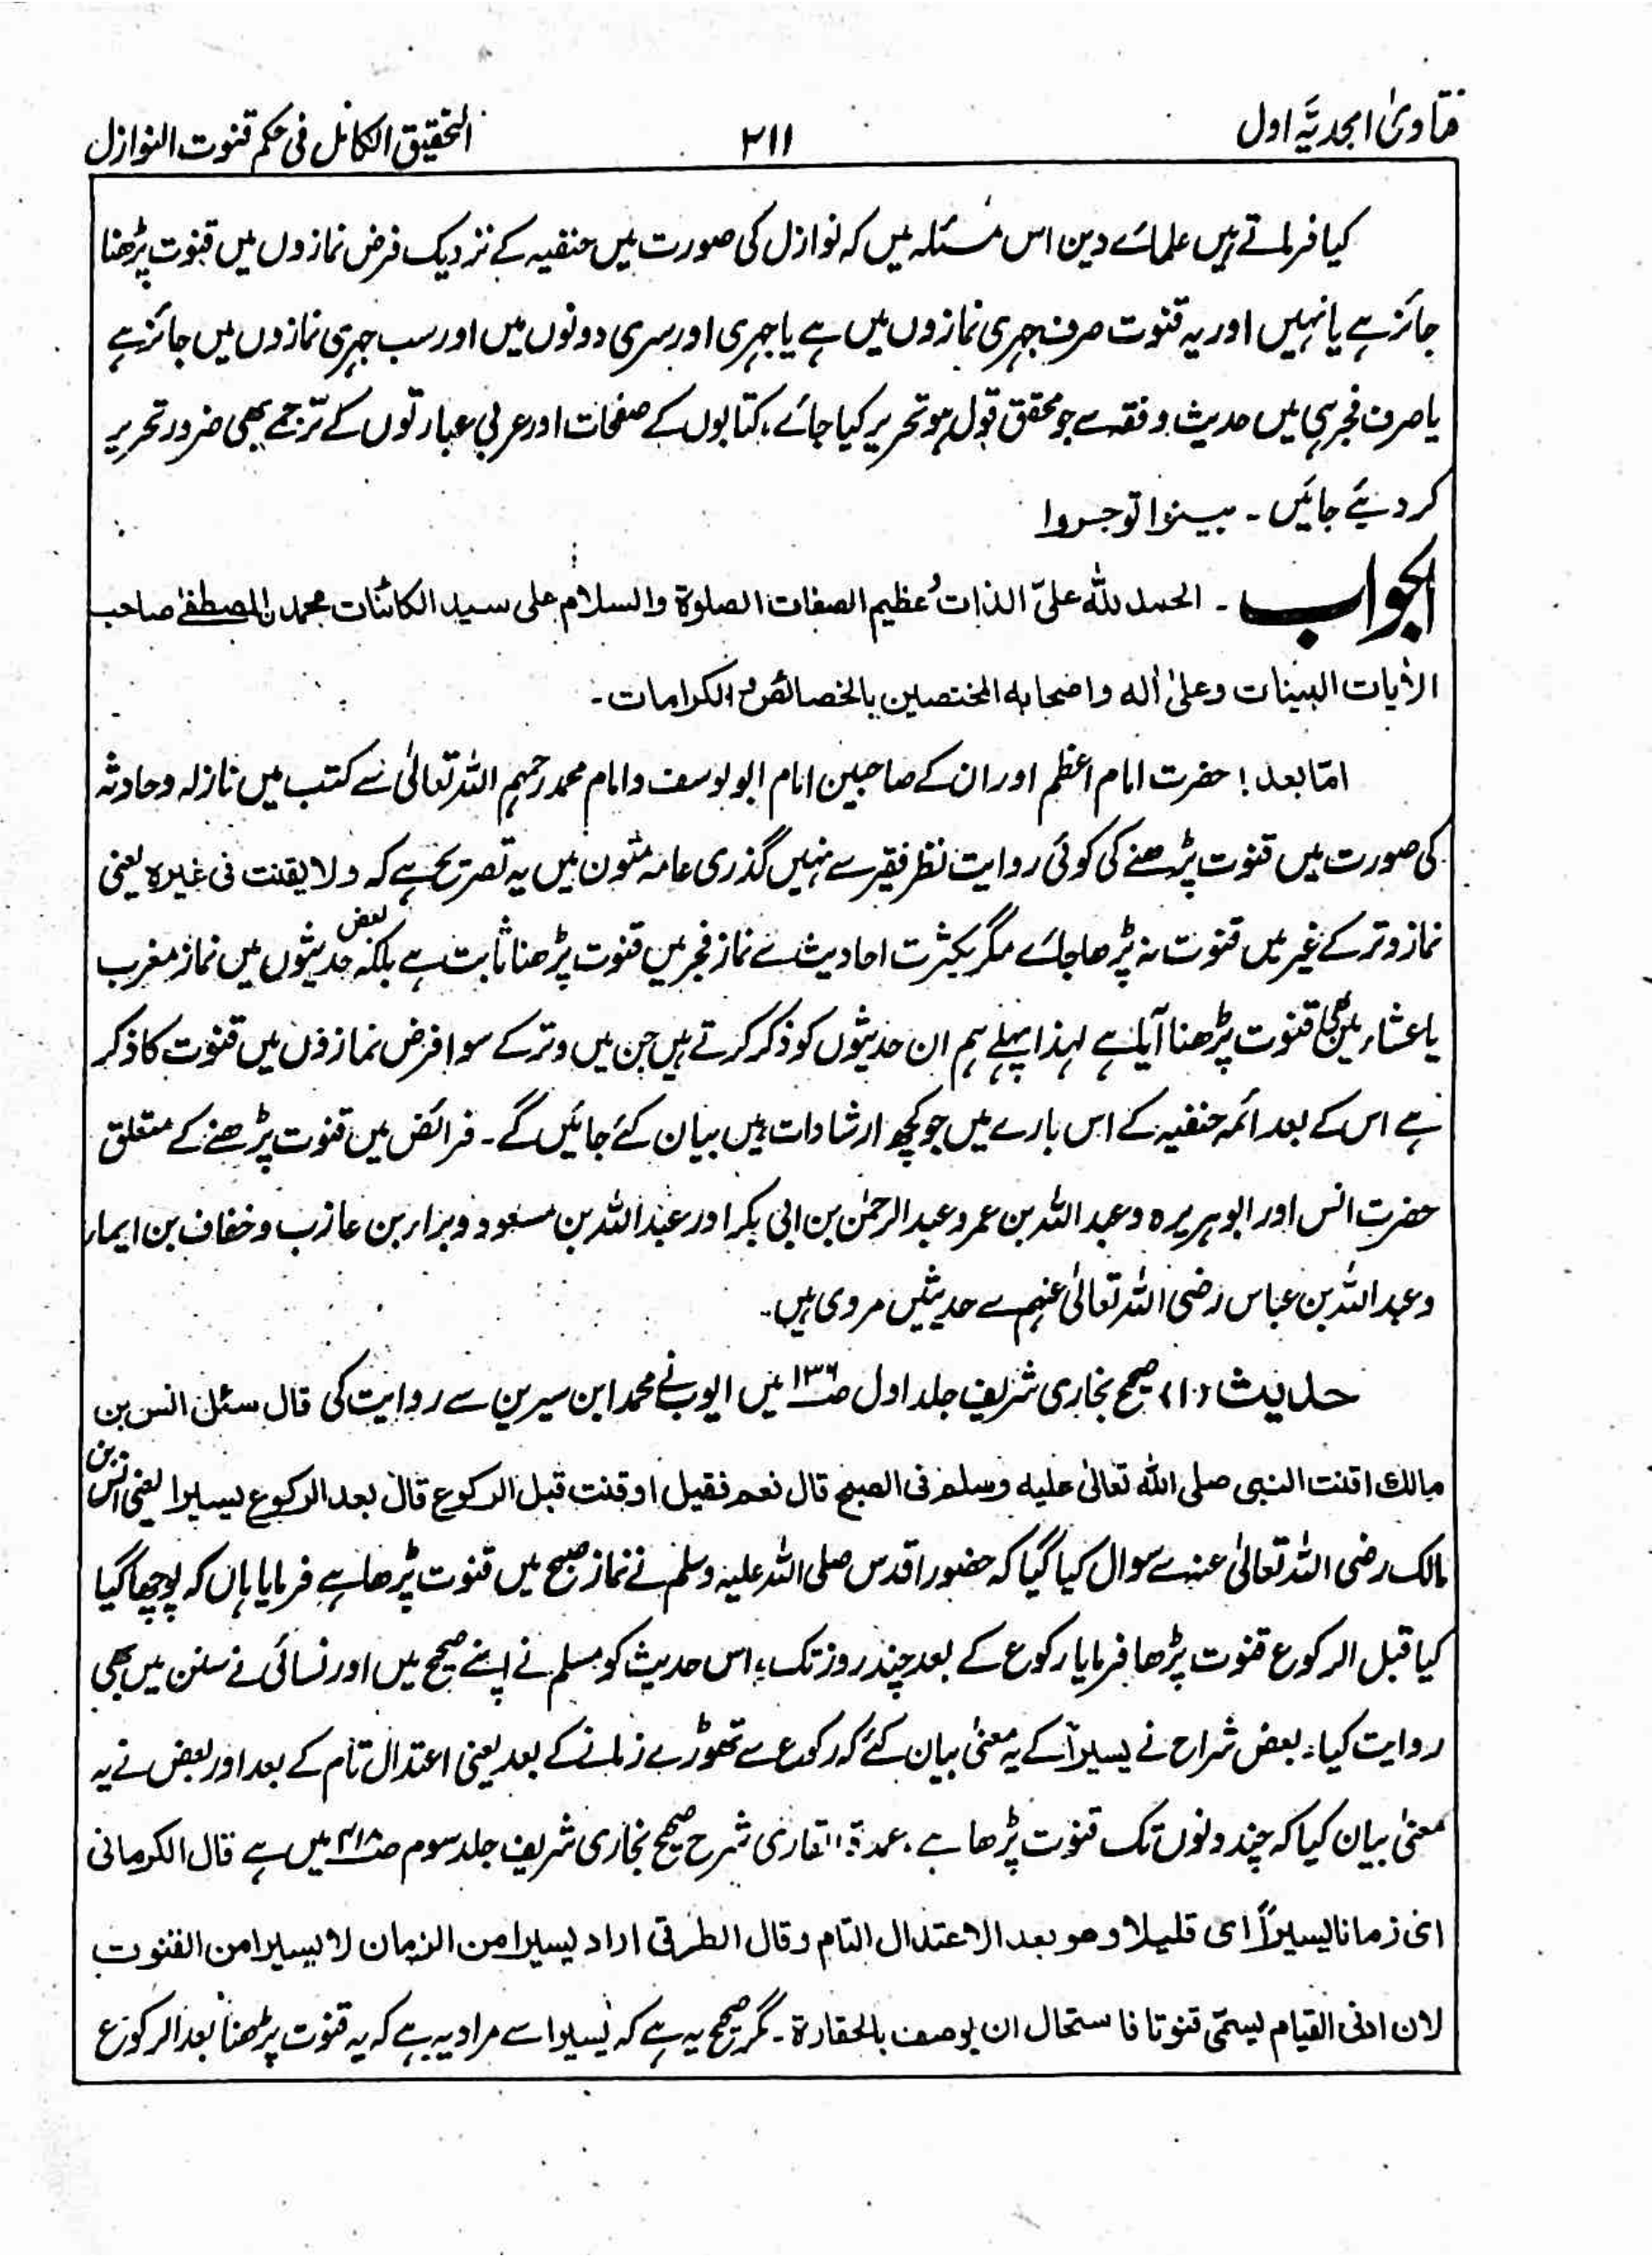 فتاویٰ امجدیّہ اول
۲۱۱
التحقیق الکامل فی حکم قنوت النوازل
کیا فرماتے ہیں علمائے دین اس مسئلہ میں کہ نوازل کی صورت میں حنفیہ کے نزدیک فرض نمازوں میں قنوت پڑھنا
جائز ہے یا نہیں اور یہ قنوت صرف جہری نمازوں میں ہے یا جہری اور سری دونوں میں اور سب جہری نمازوں میں جائز ہے
یا صرف فجر ہی میں حدیث و فقہ سے جو محقق قول ہو تحریر کیا جائے، کتابوں کے صفحات اور عربی عبارتوں کے ترجمے بھی ضرور تحریر
کر دیئے جائیں ۔ بینوا توجروا
الجواب ۔ الحمد للہ علیّ الذات عظیم الصفات الصلوۃ والسلام علی سید الکائنات محمدن المصطفیٰ صاحب
الاٰیات البینات وعلیٰ اٰلہ واصحابہ المختصین بالخصائص والکرامات ۔
امّا بعد ! حضرت امام اعظم اور ان کے صاحبین امام ابو یوسف و امام محمد رحمہم اللہ تعالیٰ سے کتب میں نازلہ و حادثہ
کی صورت میں قنوت پڑھنے کی کوئی روایت نظر فقیر سے نہیں گذری عامہ متون میں یہ تصریح ہے کہ ولا یقنت فی غیرہ یعنی
نماز وتر کے غیر میں قنوت نہ پڑھا جائے مگر بکثرت احادیث سے نماز فجر میں قنوت پڑھنا ثابت ہے بلکہ بعض حدیثوں میں نماز مغرب
یا عشاء میں بھی قنوت پڑھنا آیا ہے لہذا پہلے ہم ان حدیثوں کو ذکر کرتے ہیں جن میں وتر کے سوا فرض نمازوں میں قنوت کا ذکر
ہے اس کے بعد ائمہ حنفیہ کے اس بارے میں جو کچھ ارشادات ہیں بیان کئے جائیں گے ۔ فرائض میں قنوت پڑھنے کے متعلق
حضرت انس اور ابوہریرہ و عبد اللہ بن عمر و عبد الرحمٰن بن ابی بکر اور عبد اللہ بن مسعود و براء بن عازب و خفاف بن ایماء
و عبد اللہ بن عباس رضی اللہ تعالیٰ عنہم سے حدیثیں مروی ہیں ۔
حدیث (۱) صحیح بخاری شریف جلد اول ص۱۳۶ میں ایوب نے محمد ابن سیرین سے روایت کی قال سئل انس بن
مالک اقنت النبی صلی اللہ تعالیٰ علیہ وسلم فی الصبح قال نعم فقیل اوقنت قبل الرکوع قال بعد الرکوع یسیرا یعنی انس بن
مالک رضی اللہ تعالیٰ عنہ سے سوال کیا گیا کہ حضور اقدس صلی اللہ علیہ وسلم نے نماز صبح میں قنوت پڑھا ہے فرمایا ہاں کہ پوچھا گیا
کیا قبل الرکوع قنوت پڑھا فرمایا رکوع کے بعد چند روز تک، اس حدیث کو مسلم نے اپنے صحیح میں اور نسائی نے سنن میں بھی
روایت کیا، بعض شراح نے یسیراً کے یہ معنیٰ بیان کئے کہ رکوع سے تھوڑے زمانے کے بعد یعنی اعتدال تام کے بعد اور بعض نے یہ
معنیٰ بیان کیا کہ چند دنوں تک قنوت پڑھا ہے ۔ عمدۃ القاری شرح صحیح بخاری شریف جلد سوم ص۴۱۸ میں ہے قال الکرمانی
ای زمانا یسیراً ای قلیلا وھو بعد الاعتدال التام وقال الطرقی اراد یسیرا من الزمان لا یسیرا من القنوت
لان ادنی القیام یسمّی قنوتا فاستحال ان یوصف بالحقارۃ ۔ مگر صحیح یہ ہے کہ یسیرا سے مراد یہ ہے کہ یہ قنوت پڑھنا بعد الرکوع